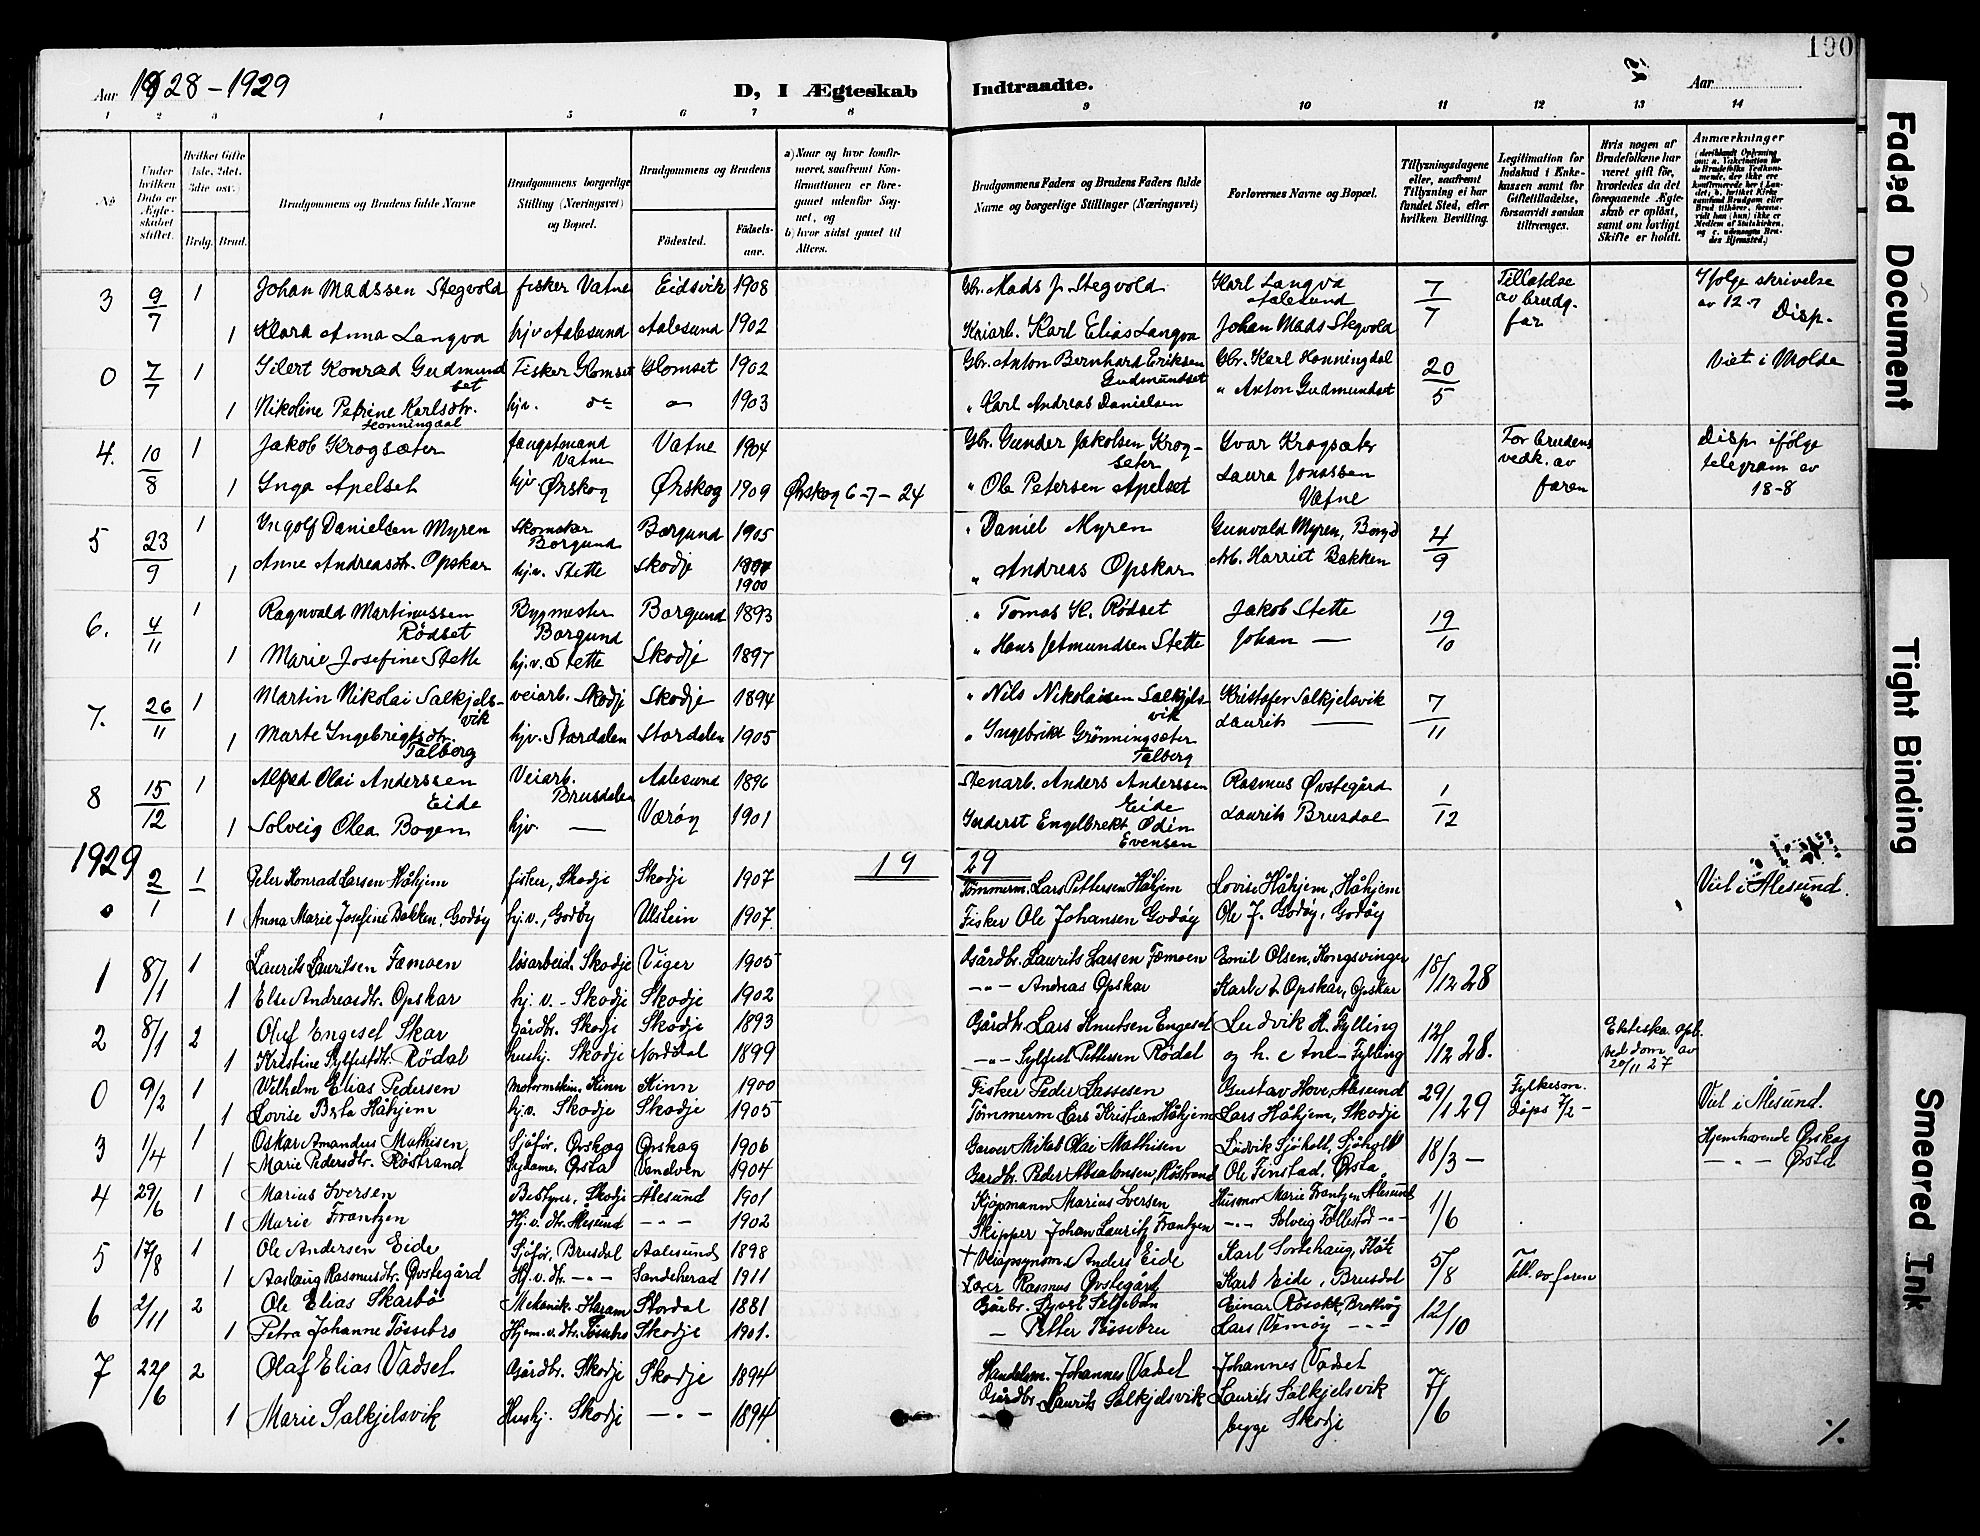 190
Aar 1928-1929
D, I Ægteskab Indtraadte.
Aar
1 2 3 4 5 6 7 8 9 10 11 12 13 14
No
Under hvilken Dato er Ægteskabet stiftet.
Hvilket Gifte 1ste, 2det, 3die osv.)
Brdg. Brud.
Brudgommens og Brudens fulde Navne
Brudgommens borgerlige Stilling (Næringsvei) og Bopæl.
Brudgommens og Brudens
Fødested.
Fødselsaar.
a) Naar og hvor konfirmeret, saafremt Konfirmationen er foregaaet udenfor Sognet, og
b) hvor sidst gaaet til Alters.
Brudgommens Faders og Brudens Faders fulde Navne og borgerlige Stillinger (Næringsvei)
Forlovernes Navne og Bopæl.
Tillysningsdagene eller, saafremt Tillysning ei har fundet Sted, efter hvilken Bevilling.
Legitimation for Indskud i Enkekassen samt for Giftetilladelse, forsaavidt saadan tiltrænges.
Hvis nogen af Brudefolkene har været gift før, hvorledes da det foregaaende Ægteskab er opløst, samt om lovligt Skifte er holdt.
Anmærkninger
3 9/7 1 Johan Madssen Stegvold fisker Vatne Eidsvik 1908 Gbr. Mads J. Stegvold Karl Langva Aalesund 7/7 Tillatelse av brudg. far Ifølge skrivelse av 12-7 Disp.
1 Klara Anna Langva hjv Aalesund Aalesund 1902 Karl Elias Langva Johan Mads Stegvold
0 7/7 1 Eilert Konrad Gudmundset Fisker Glomset Glomset 1902 Gbr. Anton Bernhard Eriksen Gudmundset Gbr. Karl Honningdal 20/5 Viet i Molde
1 Nikoline Petrine Karlsdtr. Honningdal hjv. do 1903 " Karl Andreas Danielsen " Anton Gudmundset
4. 10/8 1 Jakob Krogsæter fangstmand Vatne Vatne 1904 Gbr. Gunder Jakobsen Krogsæter Ivar Krogsæter For brudens vedk. av faren Disp. ifølge telegram av 18-8
1 Inga Apelset hjv Ørskog Ørskog 1909 Ørskog 6-7-24 " Ole Petersen Apelset Laura Jonassen Vatne
5 23/9 1 Ingolf Danielsen Myren Skomaker Borgund Borgund 1905 " Daniel Myren Gunvald Myren, Borgd 4/9
1 Anne Andreasdtr. Opskar hjv. Stette Skodje 1897 1900 " Andreas Opskar Arb. Harriet Bakken
6. 4/11 1 Ragnvald Martinussen Rödset Bygmester Borgund Borgund 1893 " Tomas K. Rödset Jakob Stette 19/10
1 Marie Josefine Stette hj.v. Stette Skodje 1897 " Hans Jetmundsen Stette Johan —
7. 26/11 1 Martin Nikolai Salkjelsvik veiarb. Skodje Skodje 1894 " Nils Nikolaisen Salkjelsvik Kristofer Salkjelsvik 7/11
1 Marte Ingebrigtsdtr. Talberg hjv. Stordalen Stordalen 1905 " Ingebrikt Grönningsæter Talberg Laurits —
8 15/12 1 Alfred Olai Anderssen Eide Veiarb. Brusdalen Aalesund 1896 Stenarb. Anders Anderssen Eide Rasmus Øvstegård 1/12
1 Solveig Olea Bogen hjv — Værøy 1901 Engelbrekt Odin Evensen Laurits Brusdal
1929 19 29
0 2/1 1 Peter Konrad Larsen Håhjem fisker, Skodje Skodje 1907 Tömmerm. Lars Pettersen Håhjem Lovise Håhjem, Håhjem Viet i Ålesund.
1 Anna Marie Josefine Bakken, Godöy hj.v., Godöy Ulstein 1907. Fisker Ole Johansen Godöy Ole J. Godöy, Godöy
1 8/1 1 Laurits Lauritsen Fæmoen løsarbeid. Skodje Viger 1905 Gårdbr. Laurits Larsen Fæmoen Emil Olsen, Kongsvinger 18/12 28
1 Else Andreasdtr. Opskar hj. v. - Skodje Skodje 1902 -"- Andreas Opskar Opskar, Opskar
2 8/1 2 Oluf Engeset Skar Gårdbr. Skodje Skodje 1893 Gårdbr. Lars Knutsen Engeset Ludvik H. Fylling 12/12 28. Ekteska. opl. ved dom av 20/11 27
1 Kristine Sylfestdtr. Rödal hushj. Skodje Norddal 1899 -"- Sylfest Pettersen Rödal og Fylling
0 9/2 1 Vilhelm Elias Pedersen Kinn Kinn 1900 Fisker Peder Lassesen Gustav Hove, Ålesund 29/1 29 Fylkesm. 7/2 - Viet i Ålesund.
1 Lovise Håhjem hj.v. Skodje Skodje 1905 Tömmerm Lars Kristian Håhjem Lars Håhjem, Skodje
3 1/4 1 Oskar Amandus Mathisen Sjåfør, Ørskog Ørskog 1906 Mikal Olai Mathisen Ludvik Sjöholt, Sjöholt 18/3 - Hjemhørende Ørskog
1 Marie Pedersdtr. Röstrand Sydame, Ørsta Vandven 1904 Gardbr. Peder Absalonsen, Röstrand Ole Finstad, Ørsta -"- Ørsta
4 29/6 1 Marius Iversen Bestyrer, Skodje Ålesund 1901 Kjöpmann Marius Iversen Husmor Marie Frantzen Ålesund 1/6
1 Marie Frantzen Hj.v. dtr. Ålesund -"- 1902 Skipper Johan Lauritz Frantzen -"- Solveig Follestad -"-
5 17/8 1 Ole Andersen Eide Sjåfør, Brusdal Aalesund 1898 + Anders Eide Karl Sortehaug, 5/8 Till. av faren
1 Aaslaug Rasmusdtr. Øvstegård Hj.v.dtr. -"- Sandeherad 1911 Lærer Rasmus Øvstegård Karl Eide, Brusdal
6 2/11 2 Ole Elias Skarbö Mekanik. Haram Stordal 1881 Gårbr. Einar 12/10
1 Petra Johanne Tössebro Hjem.v.dtr. Tössebro Skodje 1901. — Petter Tössebro Lars -"-
7 22/6 2 Olaf Elias Vadset Gårdbr. Skodje Skodje 1894 Handelsm. Johannes Vadset Johannes Vadset 7/6
1 Marie Salkjelsvik Hushj. Skodje -"- 1894 Gårdbr. Laurits Salkjelsvik Laurits Salkjelsvik begge Skodje
%.
Faded Document
Tight Binding
Smeared Ink